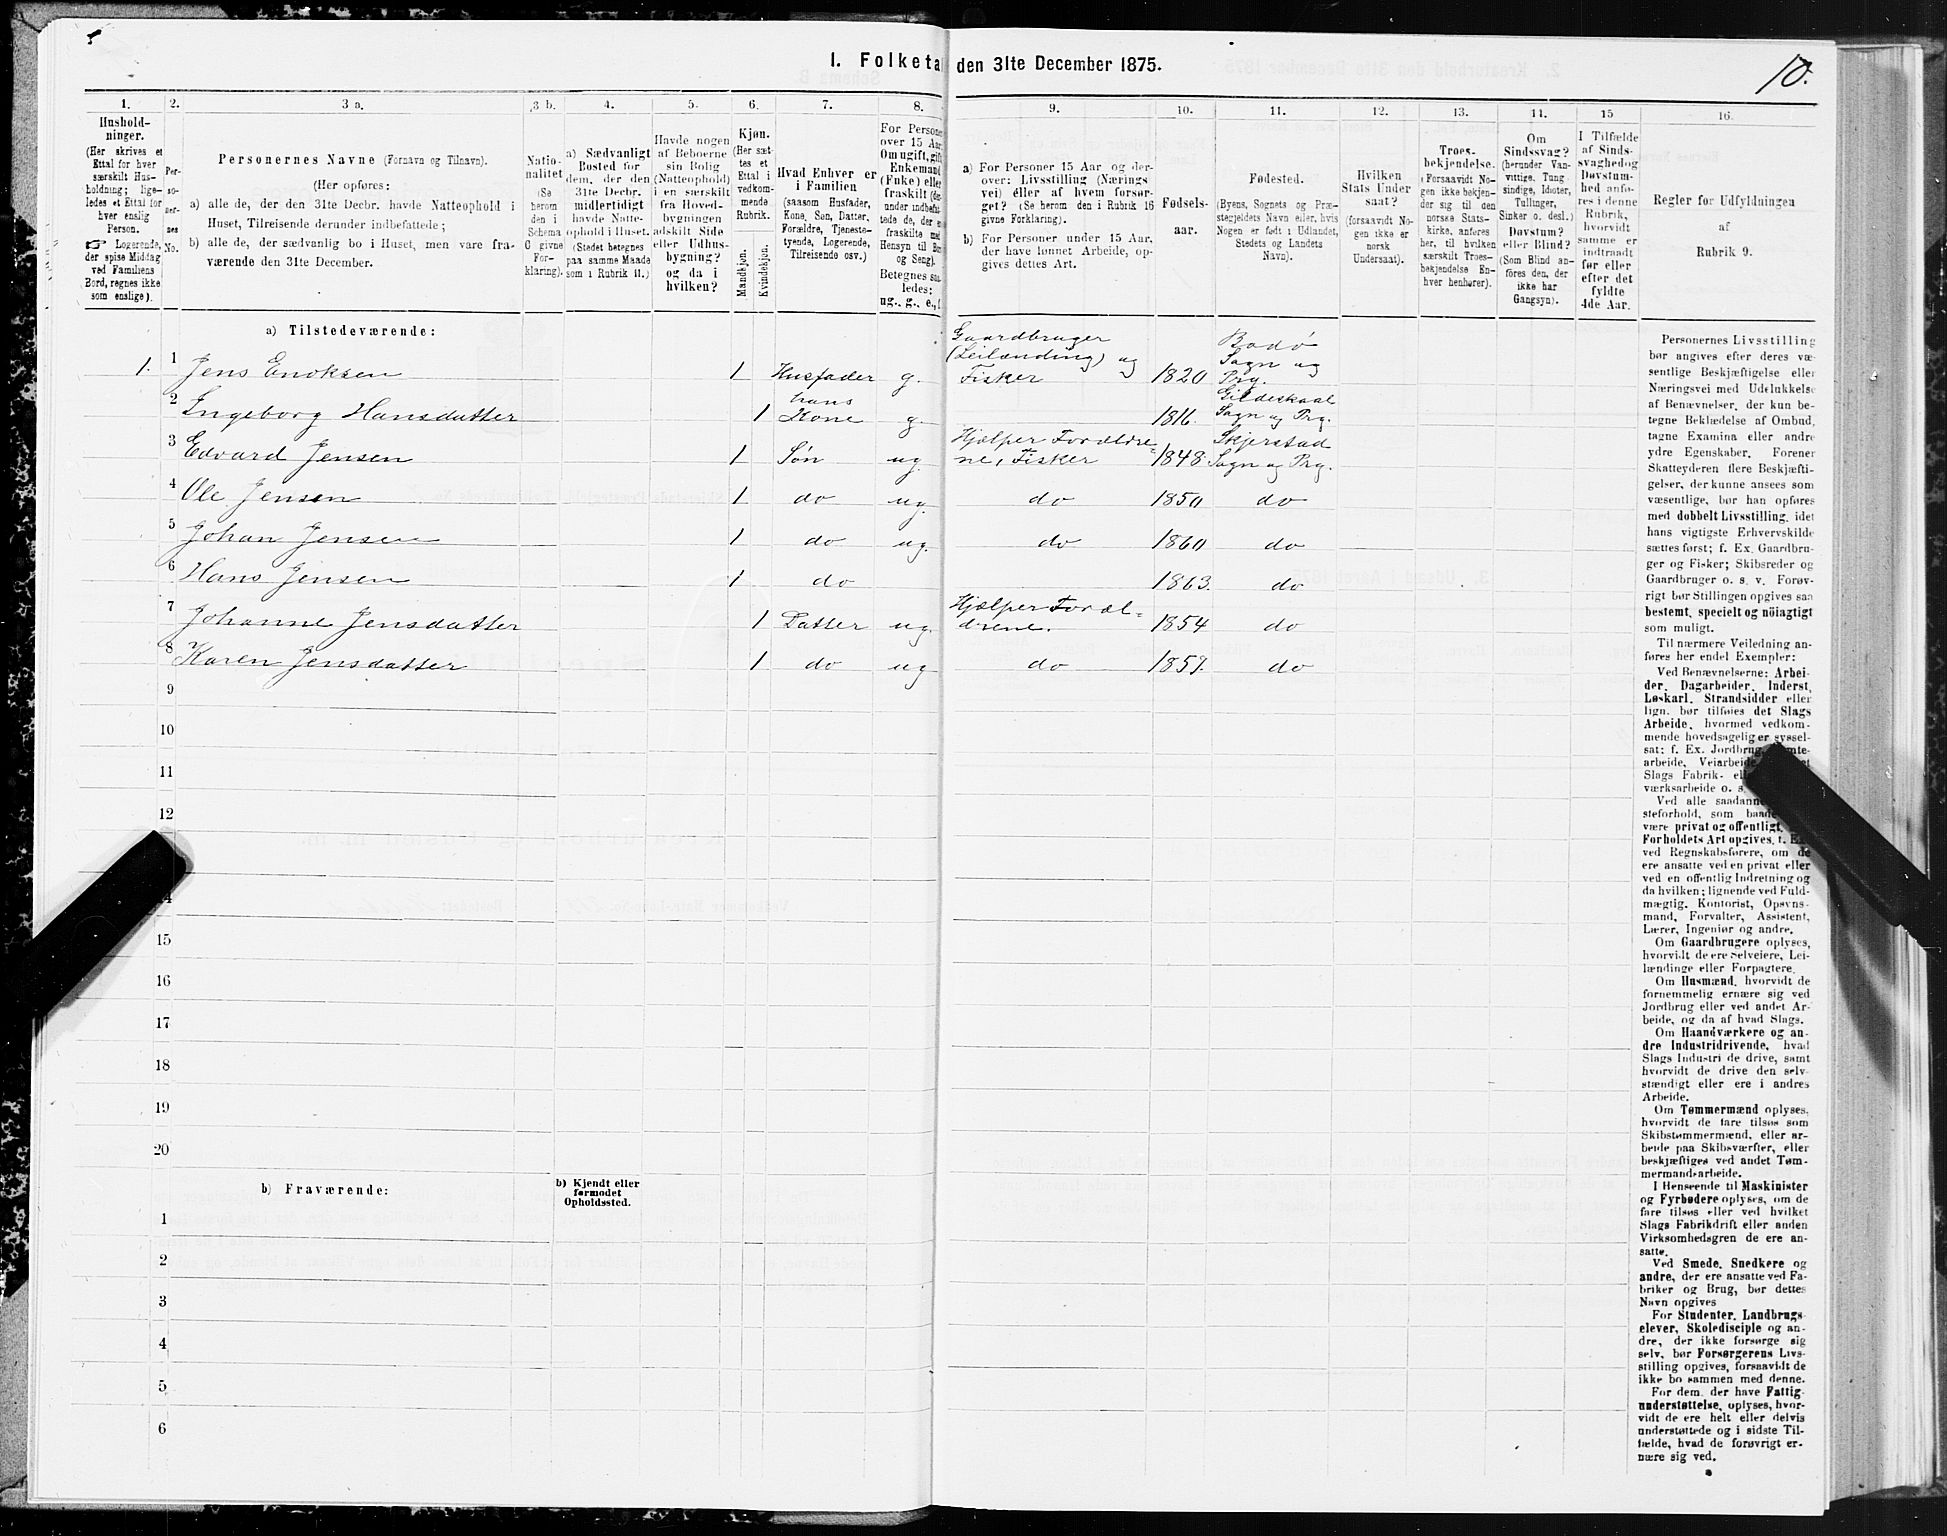 1. Folketal den 31te December 1875.
10.
1.
Hushold-
ninger.
(Her skrives et
Ettal for hver
særskilt Hus-
holdning; lige-
ledes et Ettal for
hver enslig
Person.
☞ Logerende,
der spise Middag
ved Familiens
Bord, regnes ikke
som enslige).
2.
Per-
so-
ner-
nes
No.
3 a.
Personernes Navne (Fornavn og Tilnavn).
(Her opføres:
a) alle de, der den 31te Decbr. havde Natteophold i
Huset, Tilreisende derunder indbefattede;
b) alle de, der sædvanlig bo i Huset, men vare fra-
værende den 31te December.
3 b.
Natio-
nalitet
(Se
herom
den i
Schema
C givne
For-
klaring).
4.
a) Sædvanligt
Bosted for
dem, der den
31te Decbr.
midlertidigt
havde Natte-
ophold i Huset.
(Stedet betegnes
paa samme Maade
som i Rubrik 11.)
5.
Havde nogen
af Beboerne
sin Bolig
(Natteophold)
i en særskilt
fra Hoved-
bygningen
adskilt Side
eller Udhus-
bygning?
og da i
hvilken?
6.
Kjøn.
(Her sæt-
tes et
Ettal i
vedkom-
mende
Rubrik.
Mandkjøn.
Kvindekjøn.
7.
Hvad Enhver er
i Familien
(saasom Husfader,
Kone, Søn, Datter,
Forældre, Tjeneste-
tyende, Logerende,
Tilreisende osv.)
8.
For Personer
over 15 Aar:
Om ugift, gift,
Enkemand
(Enke) eller
fraskilt
Betegnes saa-
ledes:
ug., g., e., f.
9.
a) For Personer 15 Aar og der-
over: Livsstilling (Nærings-
vei) eller af hvem forsør-
get? (Se herom den i Rubrik 16
givne Forklaring).
b) For Personer under 15 Aar,
der have lønnet Arbeide, op-
gives dettes Art.
10.
Fødsels-
aar.
11.
Fødested.
(Byens, Sognets og Præ-
stegjeldets Navn eller, hvis
Nogen er født i Udlandet,
Stedets og Landets
Navn).
12.
Hvilken
Stats Under
saat?
(forsaavidt No-
gen ikke er
norsk
Undersaat).
13.
Troes-
bekjendelse.
(Forsaavidt No-
gen ikke bekjen-
der sig til den
norske Stats-
kirke, anføres
her, til hvilken
særskilt Troes-
bekjendelse En-
hver henhører).
14.
Om
Sindssvag?
(herunder Van-
vittige, Tung
sindige, Idioter,
Tullinger,
Sinker o. desl.)
Døvstum?
eller Blind?
(Som Blind an-
føres den, der
ikke har
Gangsyn).
15
I Tilfælde
af Sinds-
svaghed og
Døvstum-
hed anfø-
res i denne
Rubrik,
hvorvidt
samme er
indtraadt
før eller
efter det
fyldte
4de Aar.
16.
Regler for Udfyldningen
af
Rubrik 9.
a) Tilstedeværende:
1. 1 Jens Enoksen 1 Husfader g. Gaardbruger (Leilænding) og Fisker 1820 Bodø Sogn og Prg.
2 Ingeborg Hansdatter 1 hans Kone g. 1816. Gildeskaal Sogn og Prg.
3 Edvard Jensen 1 Søn ug. Hjælper Forældre-ne, Fisker 1848 Skjerstad Sogn og Prg.
4 Ole Jensen 1 do ug. do 1850 do
5 Johan Jensen 1 do ug. do 1860 do
6 Hans Jensen 1 do 1863. do
7 Johanne Jensdatter 1 Datter ug. Hjælper Foræl-drene. 1854 do
8 Karen Jensdatter 1 do ug do 1857. do
9
10
11
12
15
16
17
18
19
20
b) Fraværende:
b) Kjendt eller
formodet
Opholdssted.
1
2
3
4
5
6
Personernes Livsstilling
bør angives efter deres væ-
sentlige Beskjæftigelse eller
Næringsvei med Udelukkelse
af Benævnelser, der kun be-
tegne Beklædelse af Ombud,
tagne Examina eller andre
ydre Egenskaber. Forener
Skatteyderen flere Beskjæfti-
gelser, der kunne ansees som
væsentlige, bør han opføres
med dobbelt Livsstilling, idet
hans vigtigste Erhvervskilde
sættes først; f. Ex. Gaardbru-
ger og Fisker; Skibsreder og
Gaardbruger o. s. v. Forøv-
rigt bør Stillingen opgives saa
bestemt, specielt og nöiagtigt
som muligt.
Til nærmere Veiledning an-
føres her endel Exempler:
Ved Benævnelserne: Arbei-
der, Dagarbeider, Inderst,
Løskarl, Strandsidder eller
lign. bør tilføies det Slags
Arbeide, hvormed vedkom-
mende hovedsagelig er syssel-
sat; f. Ex. Jordbrug,
arbeide, Veiarbeide,
Slags Fabrik-
værksarbeide o. s.
Ved alle saadanne
steforhold, som
være privat og offentligt,
Forholdets Art opgives, t. Ex.
ved Regnskabsførere, om de
ere ansatte ved en privat eller
ved en offentlig Indretning og
da hvilken; lignende ved Fuld-
mægtig, Kontorist, Opsyns-
mand, Forvalter, Assistent,
Lærer, Ingeniør og andre.
Om Gaardbrugere oplyses,
hvorvidt de ere Selveiere, Lei-
lændinge eller Forpagtere.
Om Husmænd, hvorvidt de
fornemmelig ernære sig ved
Jordbrug eller ved andet Ar-
beide, og da af hvad Slags.
Om Haandværkere og an-
dre Industridrivende, hvad
Slags Industri de drive, samt
hvorvidt de drive den selv-
stændigt eller ere i andres
Arbeide.
Om Tømmermænd oplyses,
hvorvidt de fare tilsøs som
Skibstømmermænd, eller ar-
beide paa Skibsværfter, eller
beskjæftiges ved andet Tøm-
mermandsarbeide.
I Henseende til Maskinister
og Fyrbødere oplyses, om de
fare tilsøs eller ved hvilket
Slags Fabrikdrift eller anden
Virksomhedsgren de ere an-
satte.
Ved Smede, Snedkere og
andre, der ere ansatte ved Fa-
briker og Brug, bør dettes
Navn opgives
For Studenter, Landbrugs-
elever, Skoledisciple og an-
dre, der ikke forsørge sig
selv, bør Forsørgerens Livs-
stilling opgives, forsaavidt de
ikke bo sammen med denne.
For dem, der have Fattig-
understøttelse, oplyses, hvor-
vidt de ere helt eller delvis
understøttede og i sidste Til-
fælde, hvad de forøvrigt er-
nære sig ved.